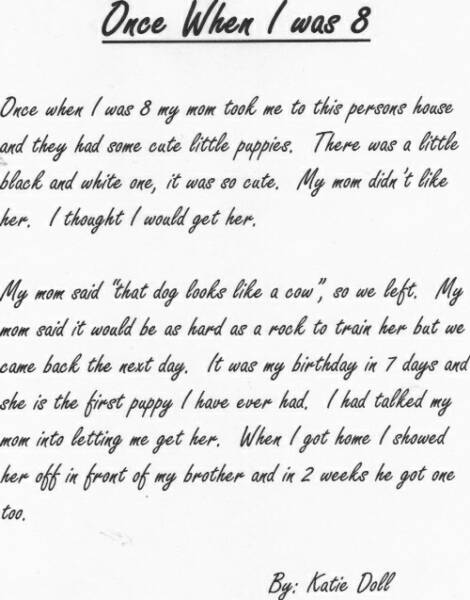 Once When I was 8
Once when I was 8 my mom took me to this persons house
and they had some cute little puppies. There was a little
black and white one, it was so cute. My mom didn't like
her. I thought I would get her.
My mom said "that dog looks like a cow", so we left. My
mom said it would be as hard as a rock to train her but we
came back the next day. It was my birthday in 7 days and
she is the first puppy I have ever had. I had talked my
mom into letting me get her. When I got home I showed
her off in front of my brother and in 2 weeks he got one
too.
By: Katie Doll